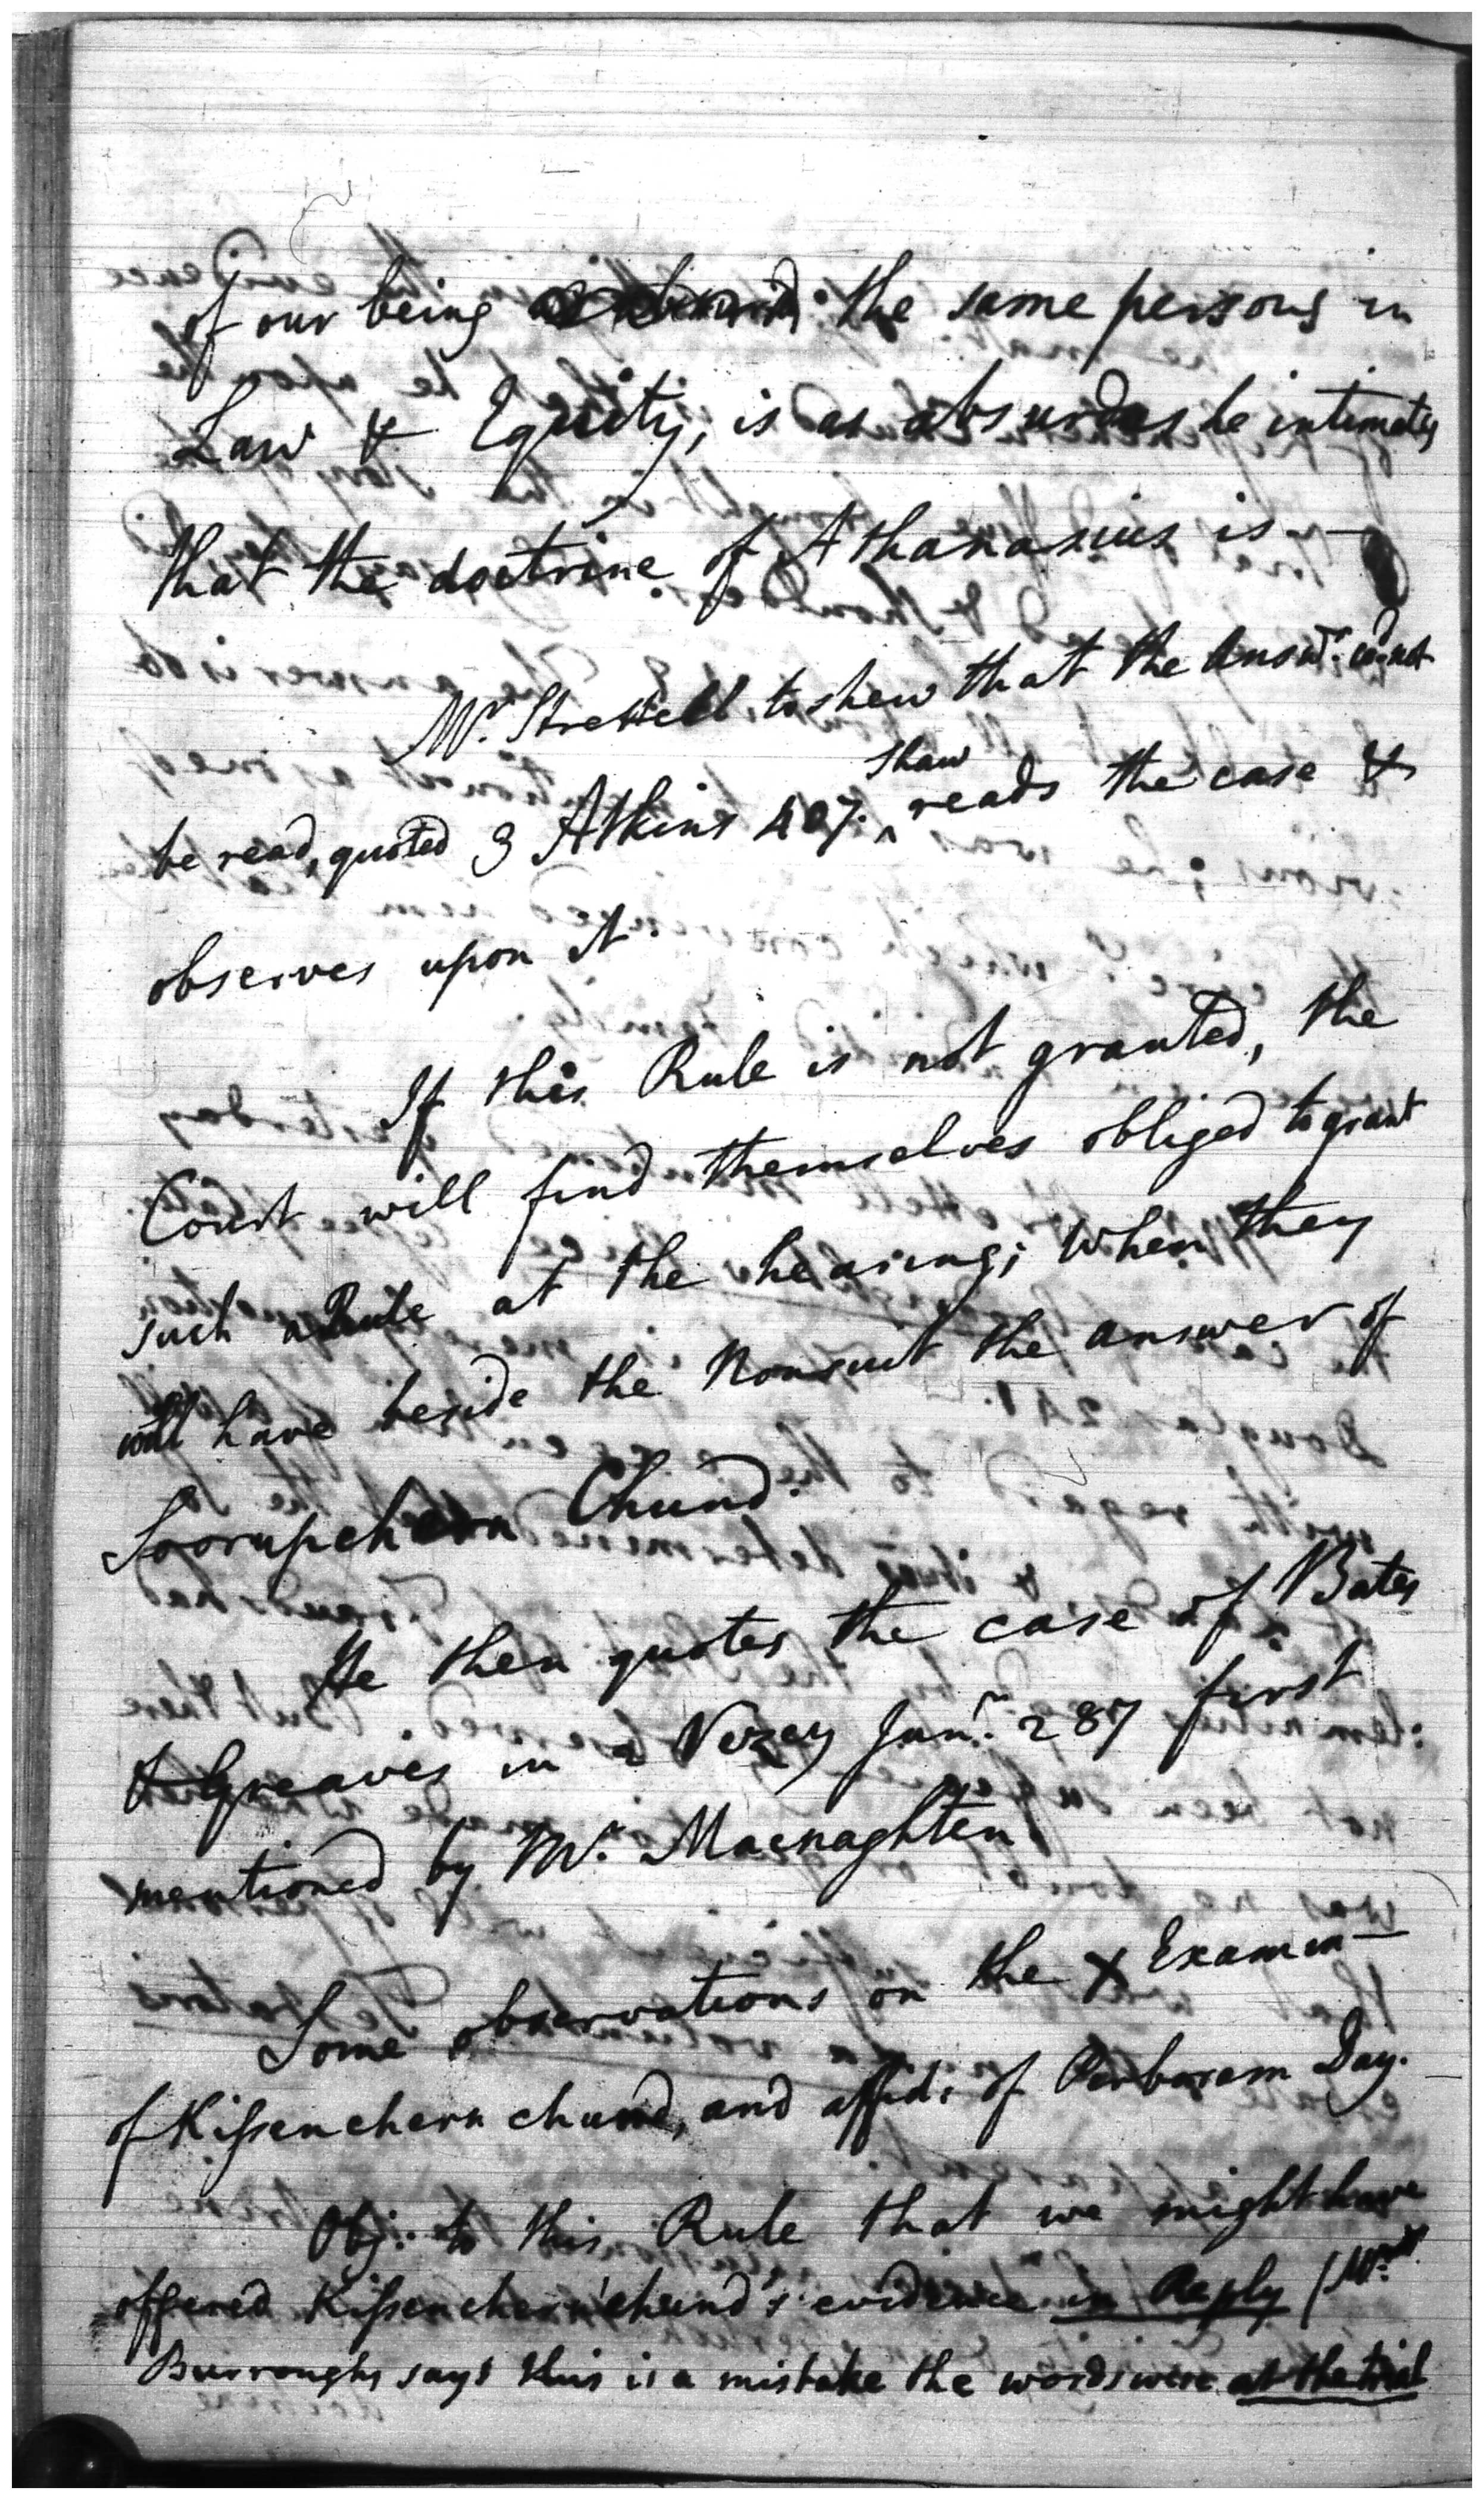 of our being the same persons in
Law & Equity, is as absurd as he intimates
that the doctrine of Athanasius is —
Mr. Strettell to shew that the Answr. cd. not
be read, quoted 3 Atkins 407. Shaw reads the case &
observes upon it.
If this Rule is not granted, the
Court will find themselves obliged to grant
such a Rule at the hearing; when they
will have beside the Nonsuit the answer of
Soorupchern Chund.
He then quotes the case of Bates
& Greaves in 2 Vezey Junr. 287 first
mentioned by Mr. Macnaghten
Some observations on the X Examin—
of Kissenchern chund, and affids. of Day.
Obj. to this Rule that we might have
offered Kissenchern chund's evidence in Reply (Mr.
Burroughs says this is a mistake the words were at the trial